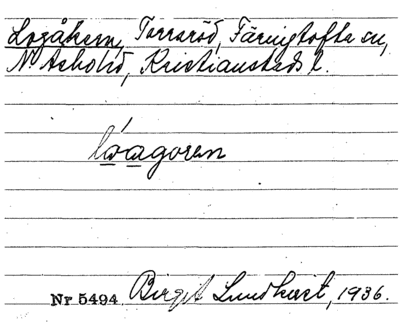 Logåkern, Torraröd, Färingtofta sn,
N. Åsbohd, Kristianstads l.
lóagoren
Nr 5494 Birgit Lundkvist, 1936.